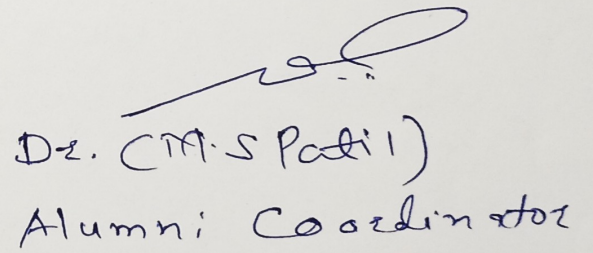 Dr. (M.S Patil)
Alumni Coordinator